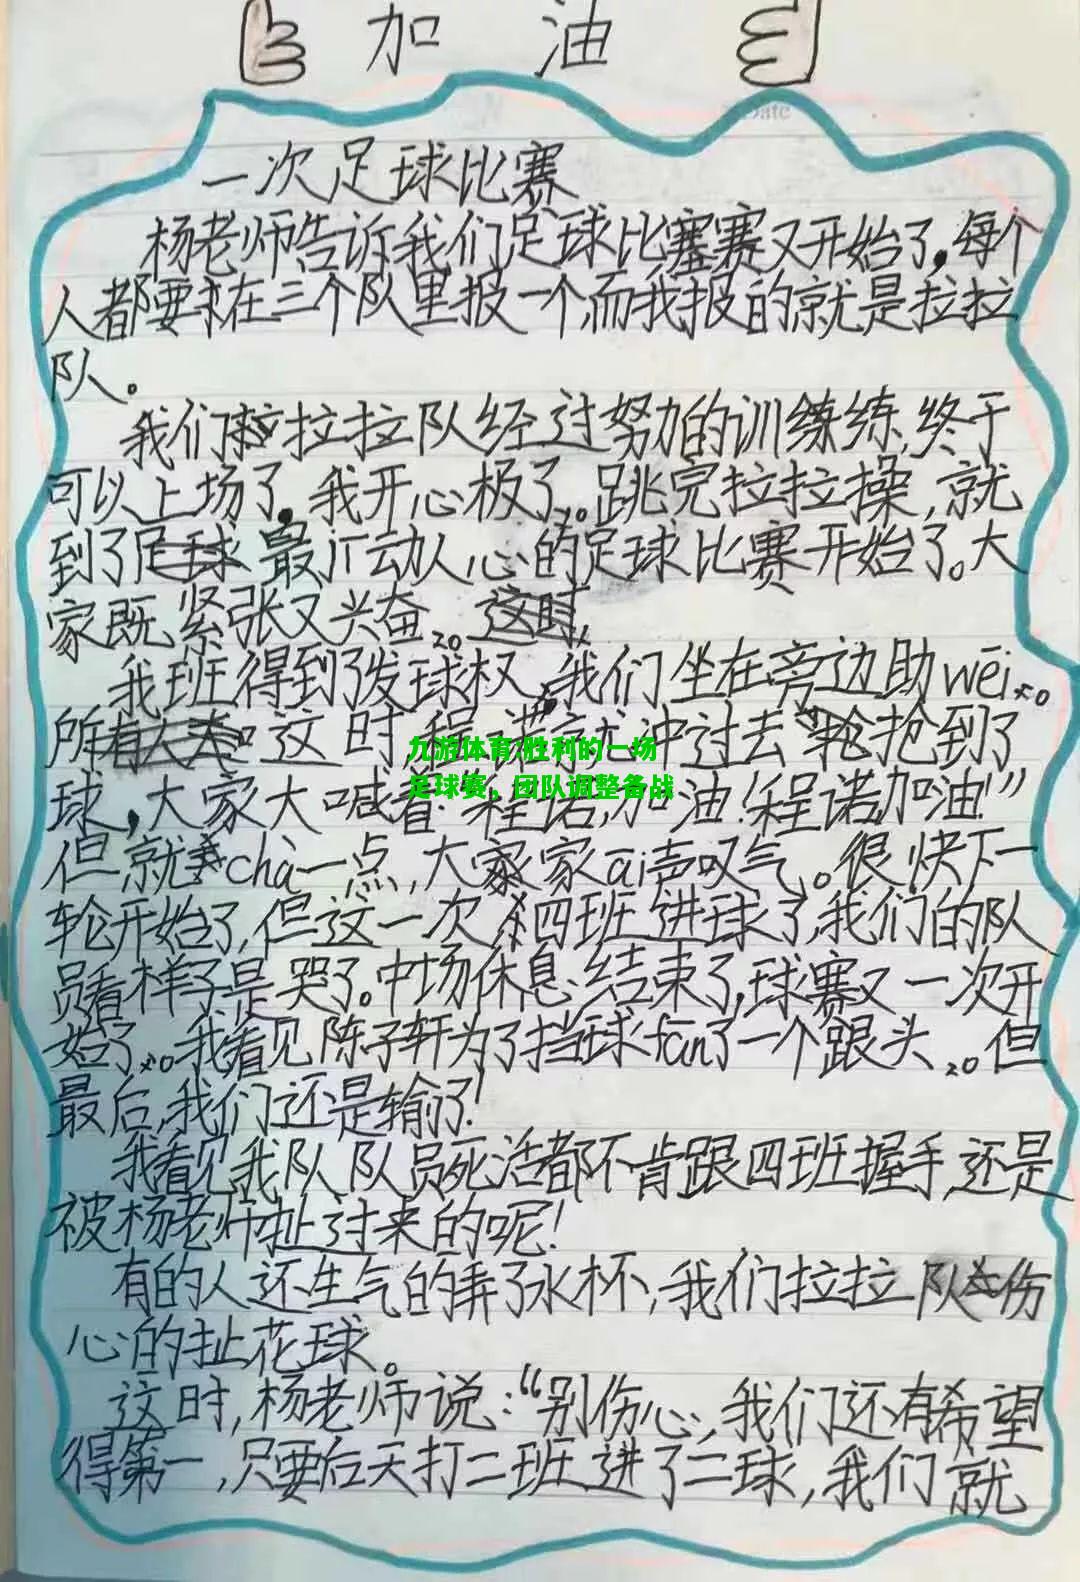 加 油
Date
一次足球比赛
杨老师告诉我们足球比赛赛又开始了,每个
人都要求在三个队里报一个,而我报的就是拉拉
队。
我们拉拉队经过努力的训练练,终于
可以上场了,我开心极了。跳完拉拉操,就
到了足球最激动人心的足球比赛开始了。大
家既紧张又兴奋。这时,
我班得到了发球权,我们坐在旁边助wēi。
所有人大这时,程诺就冲过去抢到了
九游体育:胜利的一场
足球赛，团队调整备战
球,大家大喊着“程诺,加油!程诺加油!”
但,就chà一点,大家家āi声叹气。很快下一
轮开始了,但这一次四班进球了,我们的队
员看样子是哭了。中场休息结束了,球赛又一次开
始了。我看见陈子轩为了挡球fān了一个跟头。但
最后,我们还是输了!
我看见我队队员死活都不肯跟四班握手,还是
被杨老师扯过来的呢!
有的人还生气的弄了水杯,我们拉拉队伤
心的扯花球。
这时,杨老师说:“别伤心,我们还有希望
得第一,只要后天打二班进了二球,我们就